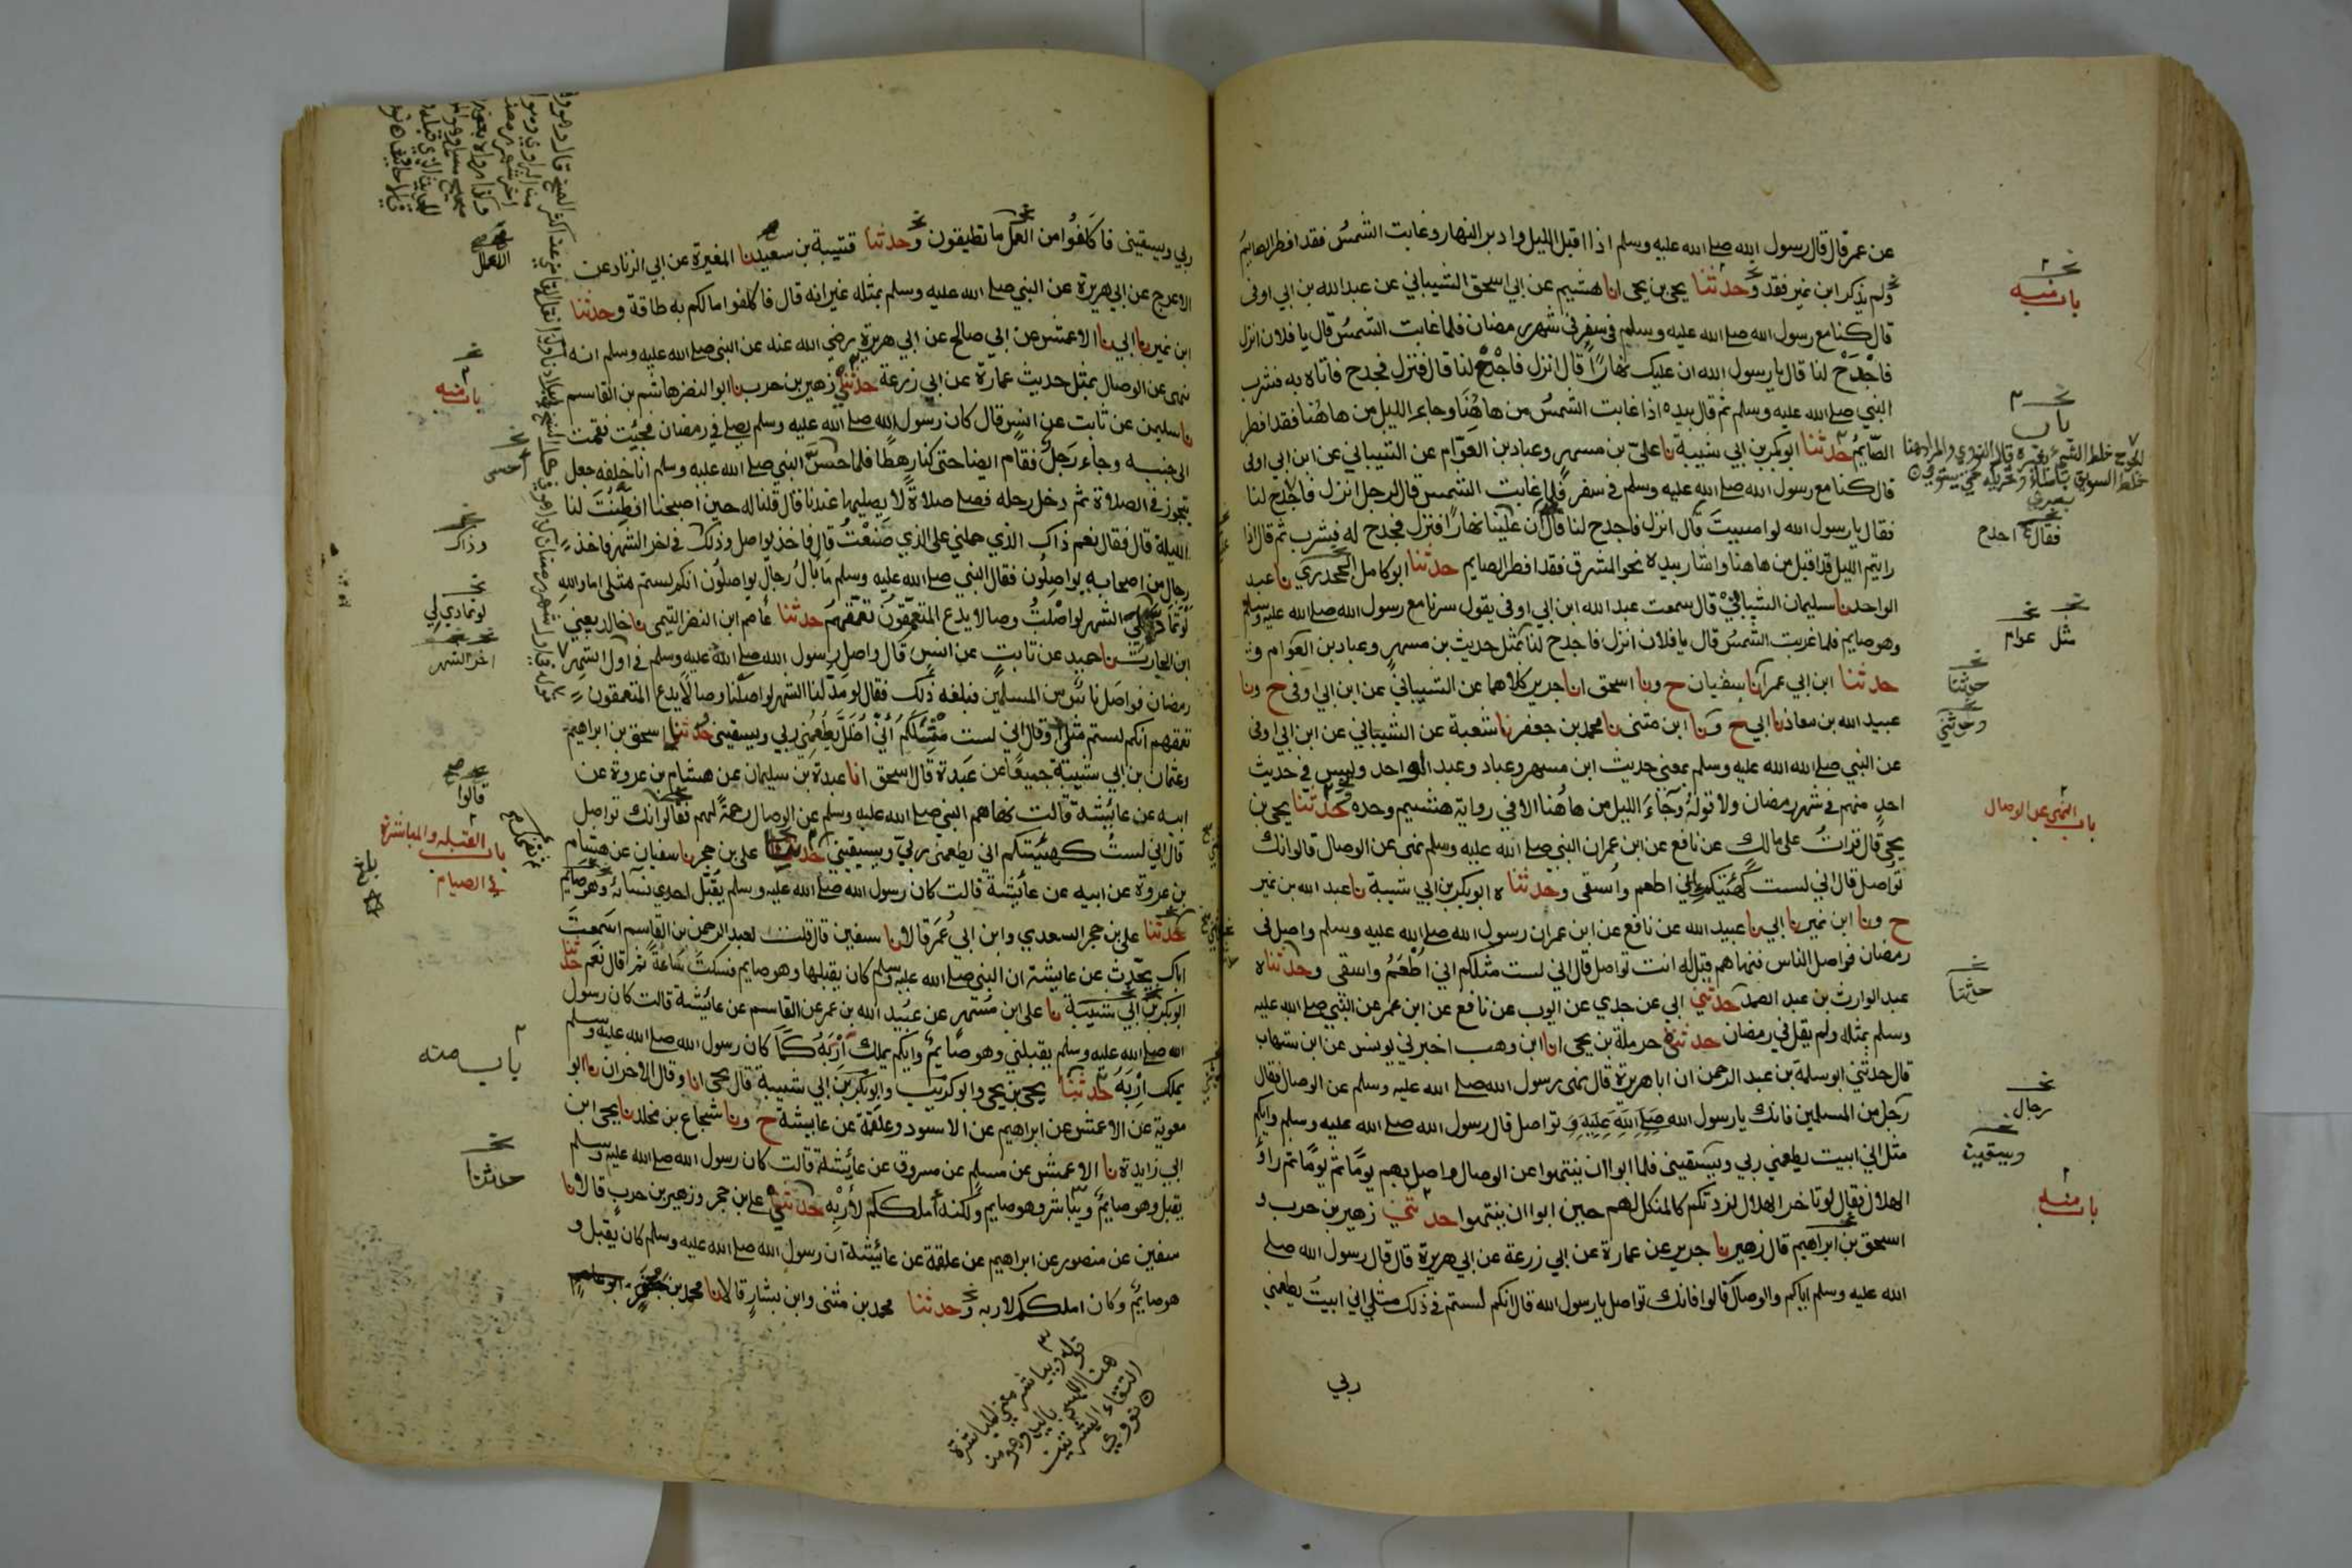 عن عمر قال قال رسول الله صلى الله عليه وسلم اذا اقبل الليل وادبر النهار وغابت الشمس فقد افطر الصايم
ولم يذكر ابن نمير فقد وحدثنا يحيى بن يحيى انا هشيم عن ابي اسحق الشيباني عن عبد الله بن ابي اوفى
قال كنا مع رسول الله صلى الله عليه وسلم في سفر في شهر رمضان فلما غابت الشمس قال يا فلان انزل
فاجدح لنا قال يا رسول الله ان عليك نهارا قال انزل فاجدح لنا قال فنزل فجدح فاتاه به فشرب
النبي صلى الله عليه وسلم ثم قال بيده اذا غابت الشمس من هاهنا وجاء الليل من هاهنا فقد افطر
الصايم حدثنا ابو بكر بن ابي شيبة نا علي بن مسهر وعباد بن العوام عن الشيباني عن ابن ابي اوفى
قال كنا مع رسول الله صلى الله عليه وسلم في سفر فلما غابت الشمس قال لرجل انزل فاجدح لنا
فقال يا رسول الله لو امسيت قال انزل فاجدح لنا قال ان علينا نهارا فنزل فجدح له فشرب ثم قال اذا
رايتم الليل قد اقبل من هاهنا واشار بيده نحو المشرق فقد افطر الصايم حدثنا ابو كامل الجحدري نا عبد
الواحد نا سليمان الشيباني قال سمعت عبد الله ابن ابي اوفى يقول سرنا مع رسول الله صلى الله عليه وسلم
وهو صايم فلما غربت الشمس قال يا فلان انزل فاجدح لنا بمثل حديث بن مسهر وعباد بن العوام
حدثنا ابن ابي عمر انا سفيان ح ونا اسحق انا جرير كلاهما عن الشيباني عن ابن ابي اوفى ح ونا
عبيد الله بن معاذ نا ابي ح ونا ابن مثنى نا محمد بن جعفر نا شعبة عن الشيباني عن ابن ابي اوفى
عن النبي صلى الله عليه وسلم بمعنى حديث ابن مسهر وعباد وعبد الواحد وليس في حديث
احد منهم في شهر رمضان ولا قوله وجاء الليل من هاهنا الا في رواية هشيم وحده وحدثنا يحيى بن
يحيى قال قرات على مالك عن نافع عن ابن عمر ان النبي صلى الله عليه وسلم نهى عن الوصال قالوا انك
تواصل قال اني لست كهيئتكم اني اطعم واسقى وحدثناه ابو بكر بن ابي شيبة نا عبد الله بن نمير
ح ونا ابن نمير نا ابي نا عبيد الله عن نافع عن ابن عمر ان رسول الله صلى الله عليه وسلم واصل في
رمضان فواصل الناس فنهاهم قيل له انت تواصل قال اني لست مثلكم اني اطعم واسقى وحدثناه
عبد الوارث بن عبد الصمد حدثني ابي عن جدي عن ايوب عن نافع عن ابن عمر عن النبي صلى الله عليه
وسلم بمثله ولم يقل في رمضان حدثني حرملة بن يحيى انا ابن وهب اخبرني يونس عن ابن شهاب
قال حدثني ابو سلمة بن عبد الرحمن ان ابا هريرة قال نهى رسول الله صلى الله عليه وسلم عن الوصال فقال
رجل من المسلمين فانك يا رسول الله تواصل قال رسول الله صلى الله عليه وسلم وايكم
مثلي اني ابيت يطعمني ربي ويسقيني فلما ابوا ان ينتهوا عن الوصال واصل بهم يوما ثم يوما ثم راوا
الهلال فقال لو تاخر الهلال لزدتكم كالمنكل لهم حين ابوا ان ينتهوا حدثني زهير بن حرب و
اسحق بن ابراهيم قال زهير نا جرير عن عمارة عن ابي زرعة عن ابي هريرة قال قال رسول الله صلى
الله عليه وسلم اياكم والوصال قالوا فانك تواصل يا رسول الله قال انكم لستم في ذلك مثلي اني ابيت يطعمني
ربي
باب منه
باب
فقال اجدح
مثل عوام
حدثنا
وحدثني
باب النهي عن الوصال
حدثنا
رجال
ويسقيني
باب منه
ربي ويسقيني فاكلفوا من العمل ما تطيقون وحدثنا قتيبة بن سعيد نا المغيرة عن ابي الزناد عن
الاعرج عن ابي هريرة عن النبي صلى الله عليه وسلم بمثله غير انه قال فاكلفوا ما لكم به طاقة وحدثنا
ابن نمير نا ابي نا الاعمش عن ابي صالح عن ابي هريرة رضي الله عنه عن النبي صلى الله عليه وسلم انه
نهى عن الوصال بمثل حديث عمارة عن ابي زرعة حدثني زهير بن حرب نا ابو النضر هاشم بن القاسم
نا سليمن عن ثابت عن انس قال كان رسول الله صلى الله عليه وسلم يصلي في رمضان فجئت فقمت
الى جنبه وجاء رجل فقام ايضا حتى كنا رهطا فلما حس النبي صلى الله عليه وسلم انا خلفه جعل
يتجوز في الصلاة ثم دخل رحله فصلى صلاة لا يصليها عندنا قال قلنا له حين اصبحنا افطنت لنا
الليلة قال فقال نعم ذاك الذي حملني على الذي صنعت قال فاخذ يواصل وذلك في اخر الشهر فاخذ
رجال من اصحابه يواصلون فقال النبي صلى الله عليه وسلم ما بال رجال يواصلون انكم لستم مثلي اما والله
الشهر لواصلت وصالا يدع المتعمقون تعمقهم حدثنا عاصم ابن النضر التيمي نا خالد يعني
ابن الحارث نا حميد عن ثابت عن انس قال واصل رسول الله صلى الله عليه وسلم في اول الشهر
رمضان فواصل ناس من المسلمين فبلغه ذلك فقال لو مد لنا الشهر لواصلنا وصالا يدع المتعمقون
تعمقهم انكم لستم مثلي او قال اني لست مثلكم اني اظل يطعمني ربي ويسقيني حدثنا اسحق بن ابراهيم
وعثمان بن ابي شيبة جميعا عن عبدة قال اسحق انا عبدة بن سليمان عن هشام بن عروة عن
ابيه عن عائشة قالت نهاهم النبي صلى الله عليه وسلم عن الوصال رحمة لهم فقالوا انك تواصل
قال اني لست كهيئتكم اني يطعمني ربي ويسقيني حدثنا علي بن حجر نا سفيان عن هشام
بن عروة عن ابيه عن عائشة قالت كان رسول الله صلى الله عليه وسلم يقبل احدى نسائه وهو صايم
حدثنا علي بن حجر السعدي وابن ابي عمر قالا نا سفين قال قلت لعبد الرحمن بن القاسم اسمعت
اباك يحدث عن عايشة ان النبي صلى الله عليه وسلم كان يقبلها وهو صايم فسكت ساعة ثم قال نعم حدثنا
ابو بكر بن ابي شيبة نا علي ابن مسهر عن عبيد الله بن عمر عن القاسم عن عائشة قالت كان رسول
الله صلى الله عليه وسلم يقبلني وهو صايم وايكم يملك اربه كما كان رسول الله صلى الله عليه وسلم
يملك اربه حدثنا يحيى بن يحيى وابو كريب وابو بكر بن ابي شيبة قال يحيى انا وقال الاخران نا ابو
معوية عن الاعمش عن ابراهيم عن الاسود وعلقمة عن عايشة ح ونا شجاع بن مخلد نا يحيى ابن
ابي زايدة نا الاعمش عن مسلم عن مسروق عن عائشة قالت كان رسول الله صلى الله عليه وسلم
يقبل وهو صايم ويباشر وهو صايم ولكنه املككم لاربه حدثني علي بن حجر وزهير بن حرب قالا نا
سفين عن منصور عن ابراهيم عن علقمة عن عائشة ان رسول الله صلى الله عليه وسلم كان يقبل و
هو صايم وكان املككم لاربه وحدثنا محمد بن مثنى وابن بشار قالا نا محمد بن جعفر
باب منه
احس
وذاك
لو تمادى لي
اخر الشهر
قالوا
باب القبلة والمباشرة
في الصيام
باب منه
حدثنا
قوله ويباشر معنى المباشرة
هنا اللمس باليد وهو من
التقاء البشرتين
نووي